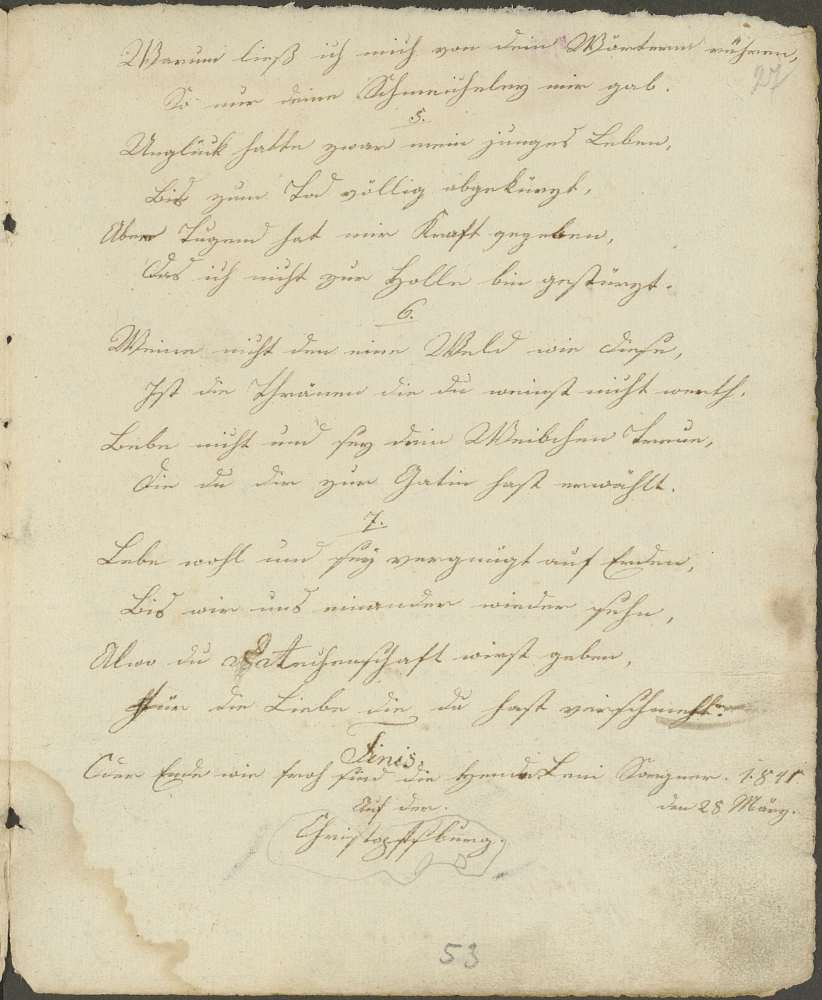 Warum ließ ich mich von dein Wörtern rühren,
27
So nur deine Schmeicheley mir gab.
5.
Unglück hatte zwar mein junges Leben,
Bis zum Tod völlig abgekürzt,
Aber Tugend hat mir Kraft gegeben,
Das ich nicht zur Holle bin gestürzt.
6.
Weine nicht den eine Weld wie diese,
Ist die Thränen die du weinst nicht werth.
Bebe nicht und sey dein Weibchen Treue,
Die du dir zur Gatin hast erwählt.
7.
Lebe wohl und sey vergnügt auf Erden,
Bis wir uns einander wieder sehn,
Alwo du Rechenschaft wirst geben,
Für die Liebe die du hast verschmeht.
Finis.
Oder Ende wie froh sind die bey 1841
Auf der. den 28 März.
Christopfsburg.
53